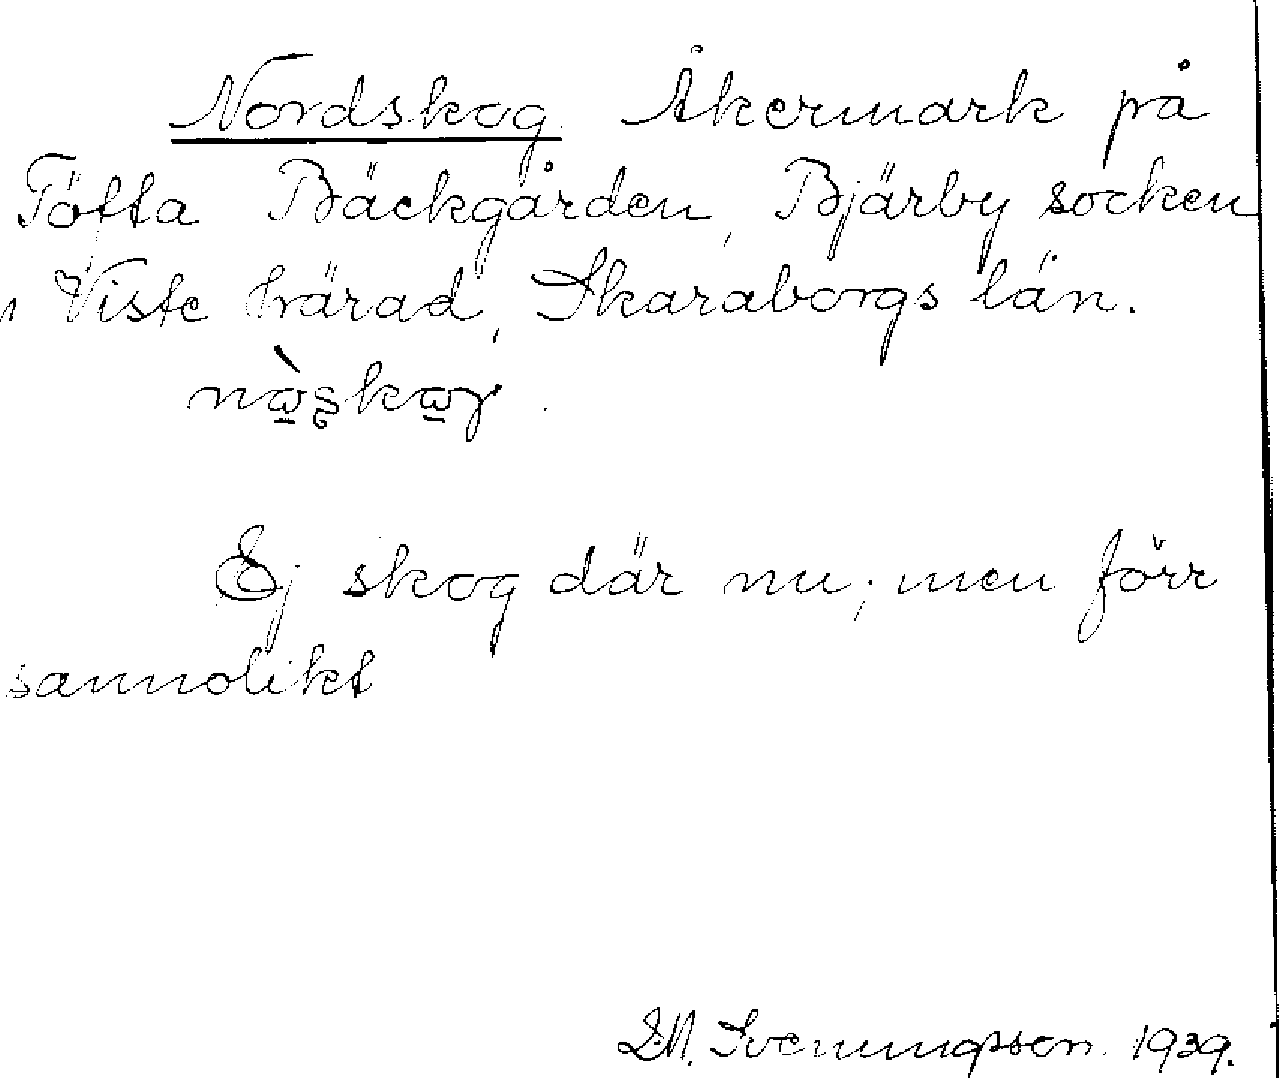 Nordskog Åkermark på
Töfta Bäckgården, Bjärby socken
, Viste härad, Skaraborgs län.
Ej skog där nu; men förr
sannolikt
1939.